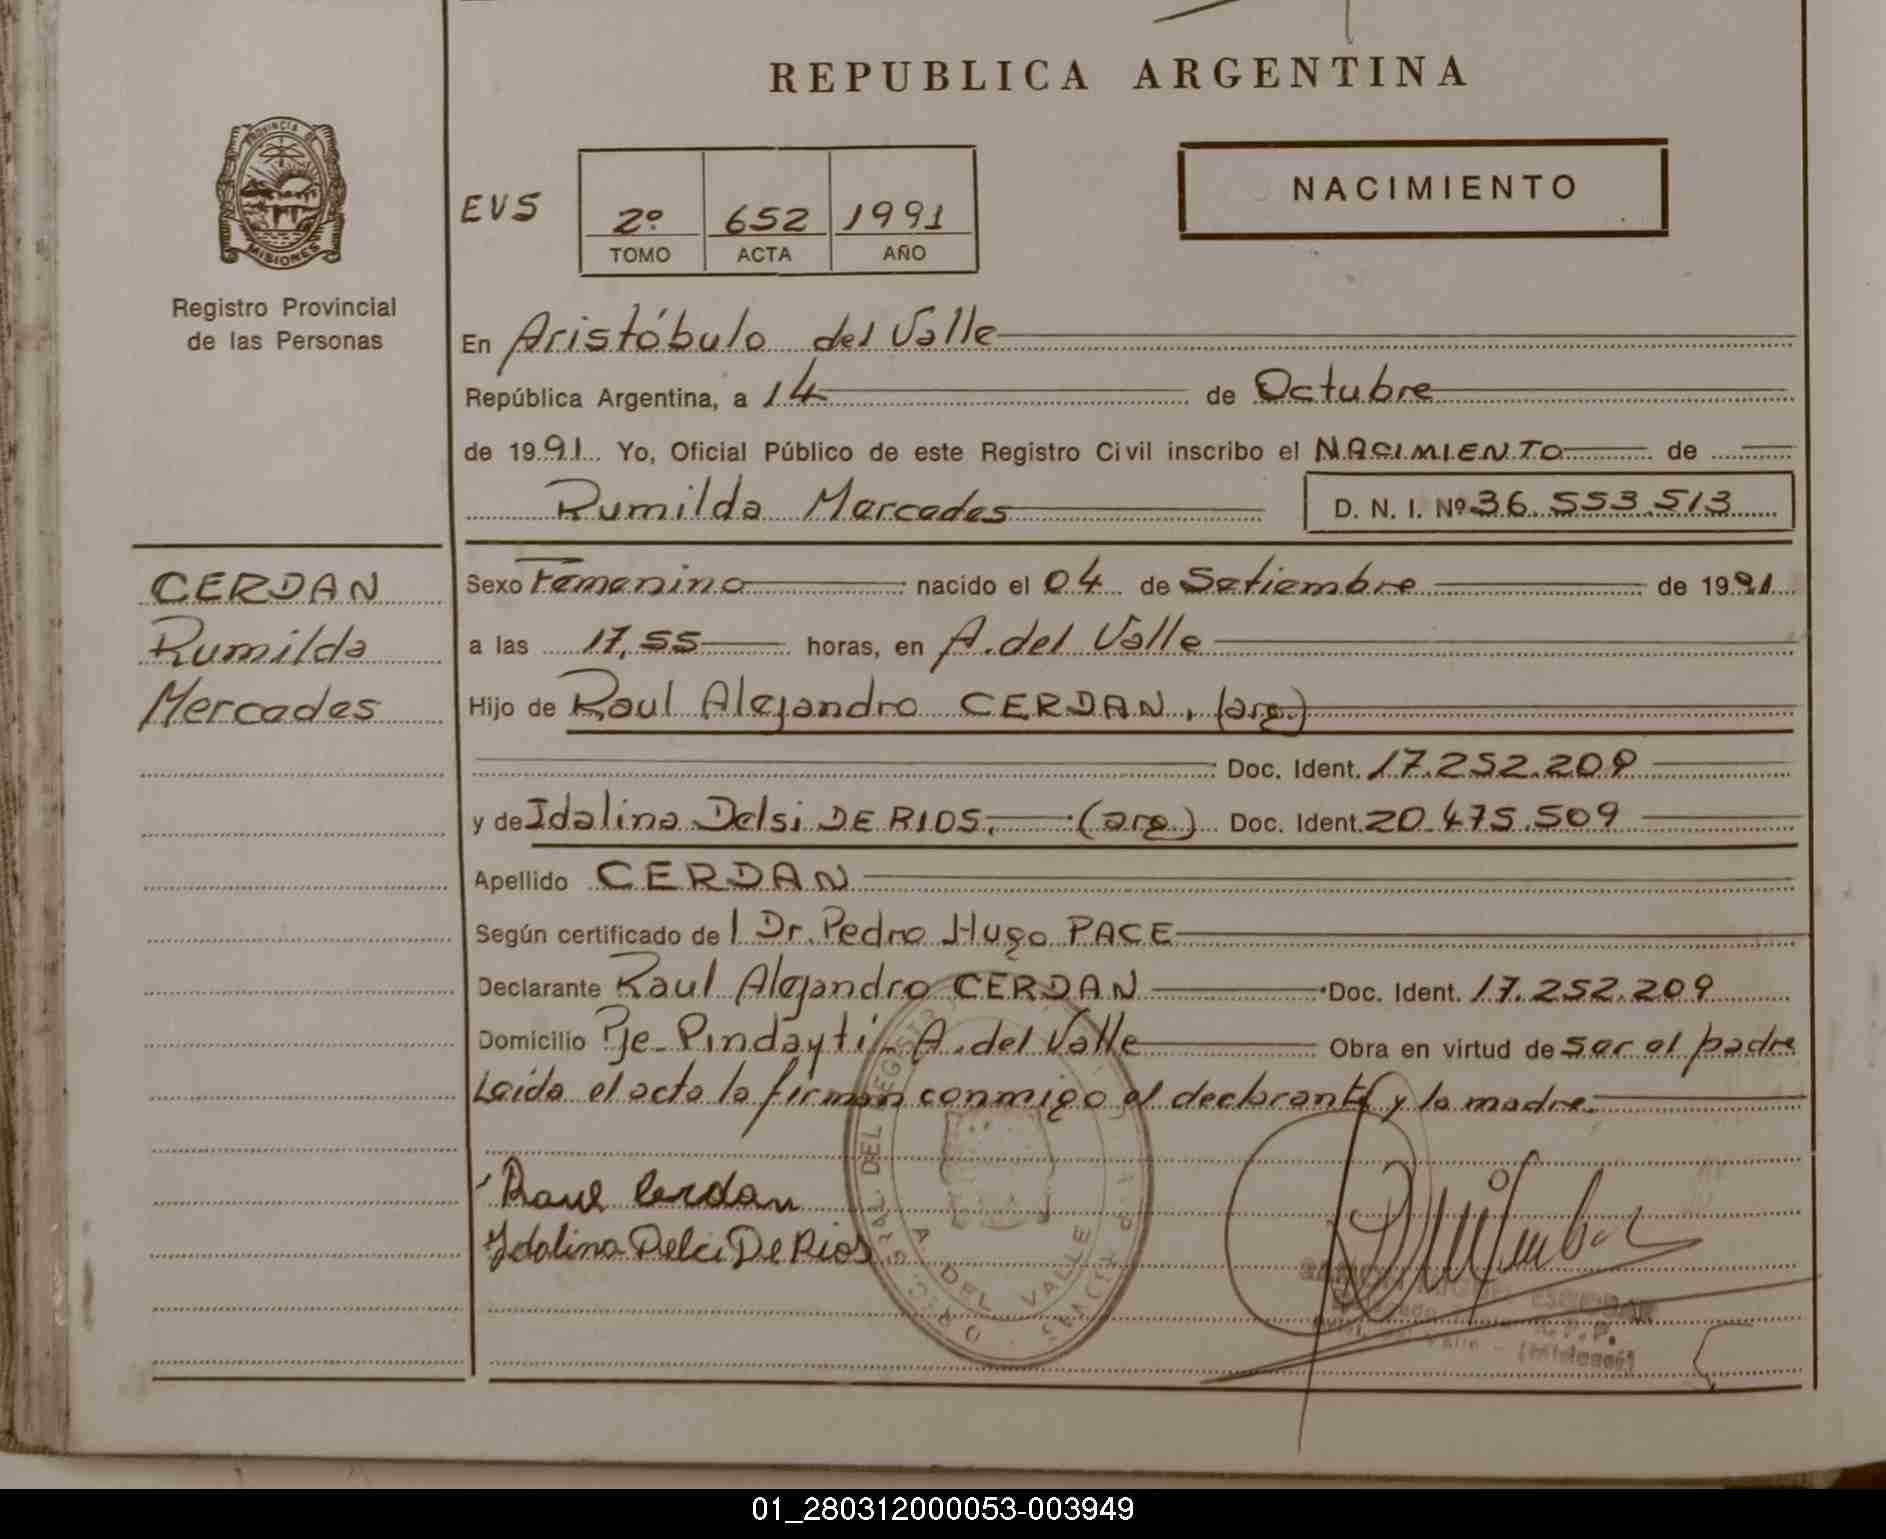 REPUBLICA ARGENTINA
PROVINCIA DE
MISIONES
Registro Provincial
de las Personas
EVS
2º 652 1991
TOMO ACTA AÑO
NACIMIENTO
En Aristóbulo del Valle
República Argentina, a 14 de Octubre
de 1991 Yo, Oficial Público de este Registro Civil inscribo el NACIMIENTO de
Rumilda Mercedes D. N. I. Nº 36.553.513
CERDAN
Rumilda
Mercedes
Sexo Femenino nacido el 04 de Setiembre de 1991
a las 17,55 horas, en A. del Valle
Hijo de Raul Alejandro CERDAN, (arg.)
Doc. Ident. 17.252.209
y de Idalina Delsi DE RIOS. (arg.) Doc. Ident. 20.475.509
Apellido CERDAN
Según certificado de l Dr. Pedro Hugo PACE
Declarante Raul Alejandro CERDAN Doc. Ident. 17.252.209
Domicilio Pje. Pindayti - A. del Valle Obra en virtud de ser el padre
Leida el acta la firman conmigo el declarante y la madre.
Raul Cerdan
Idalina Delci De Rios
A. DEL VALLE
ESCOBAR
R.P.P.
Valle - (Misiones)
01_280312000053-003949